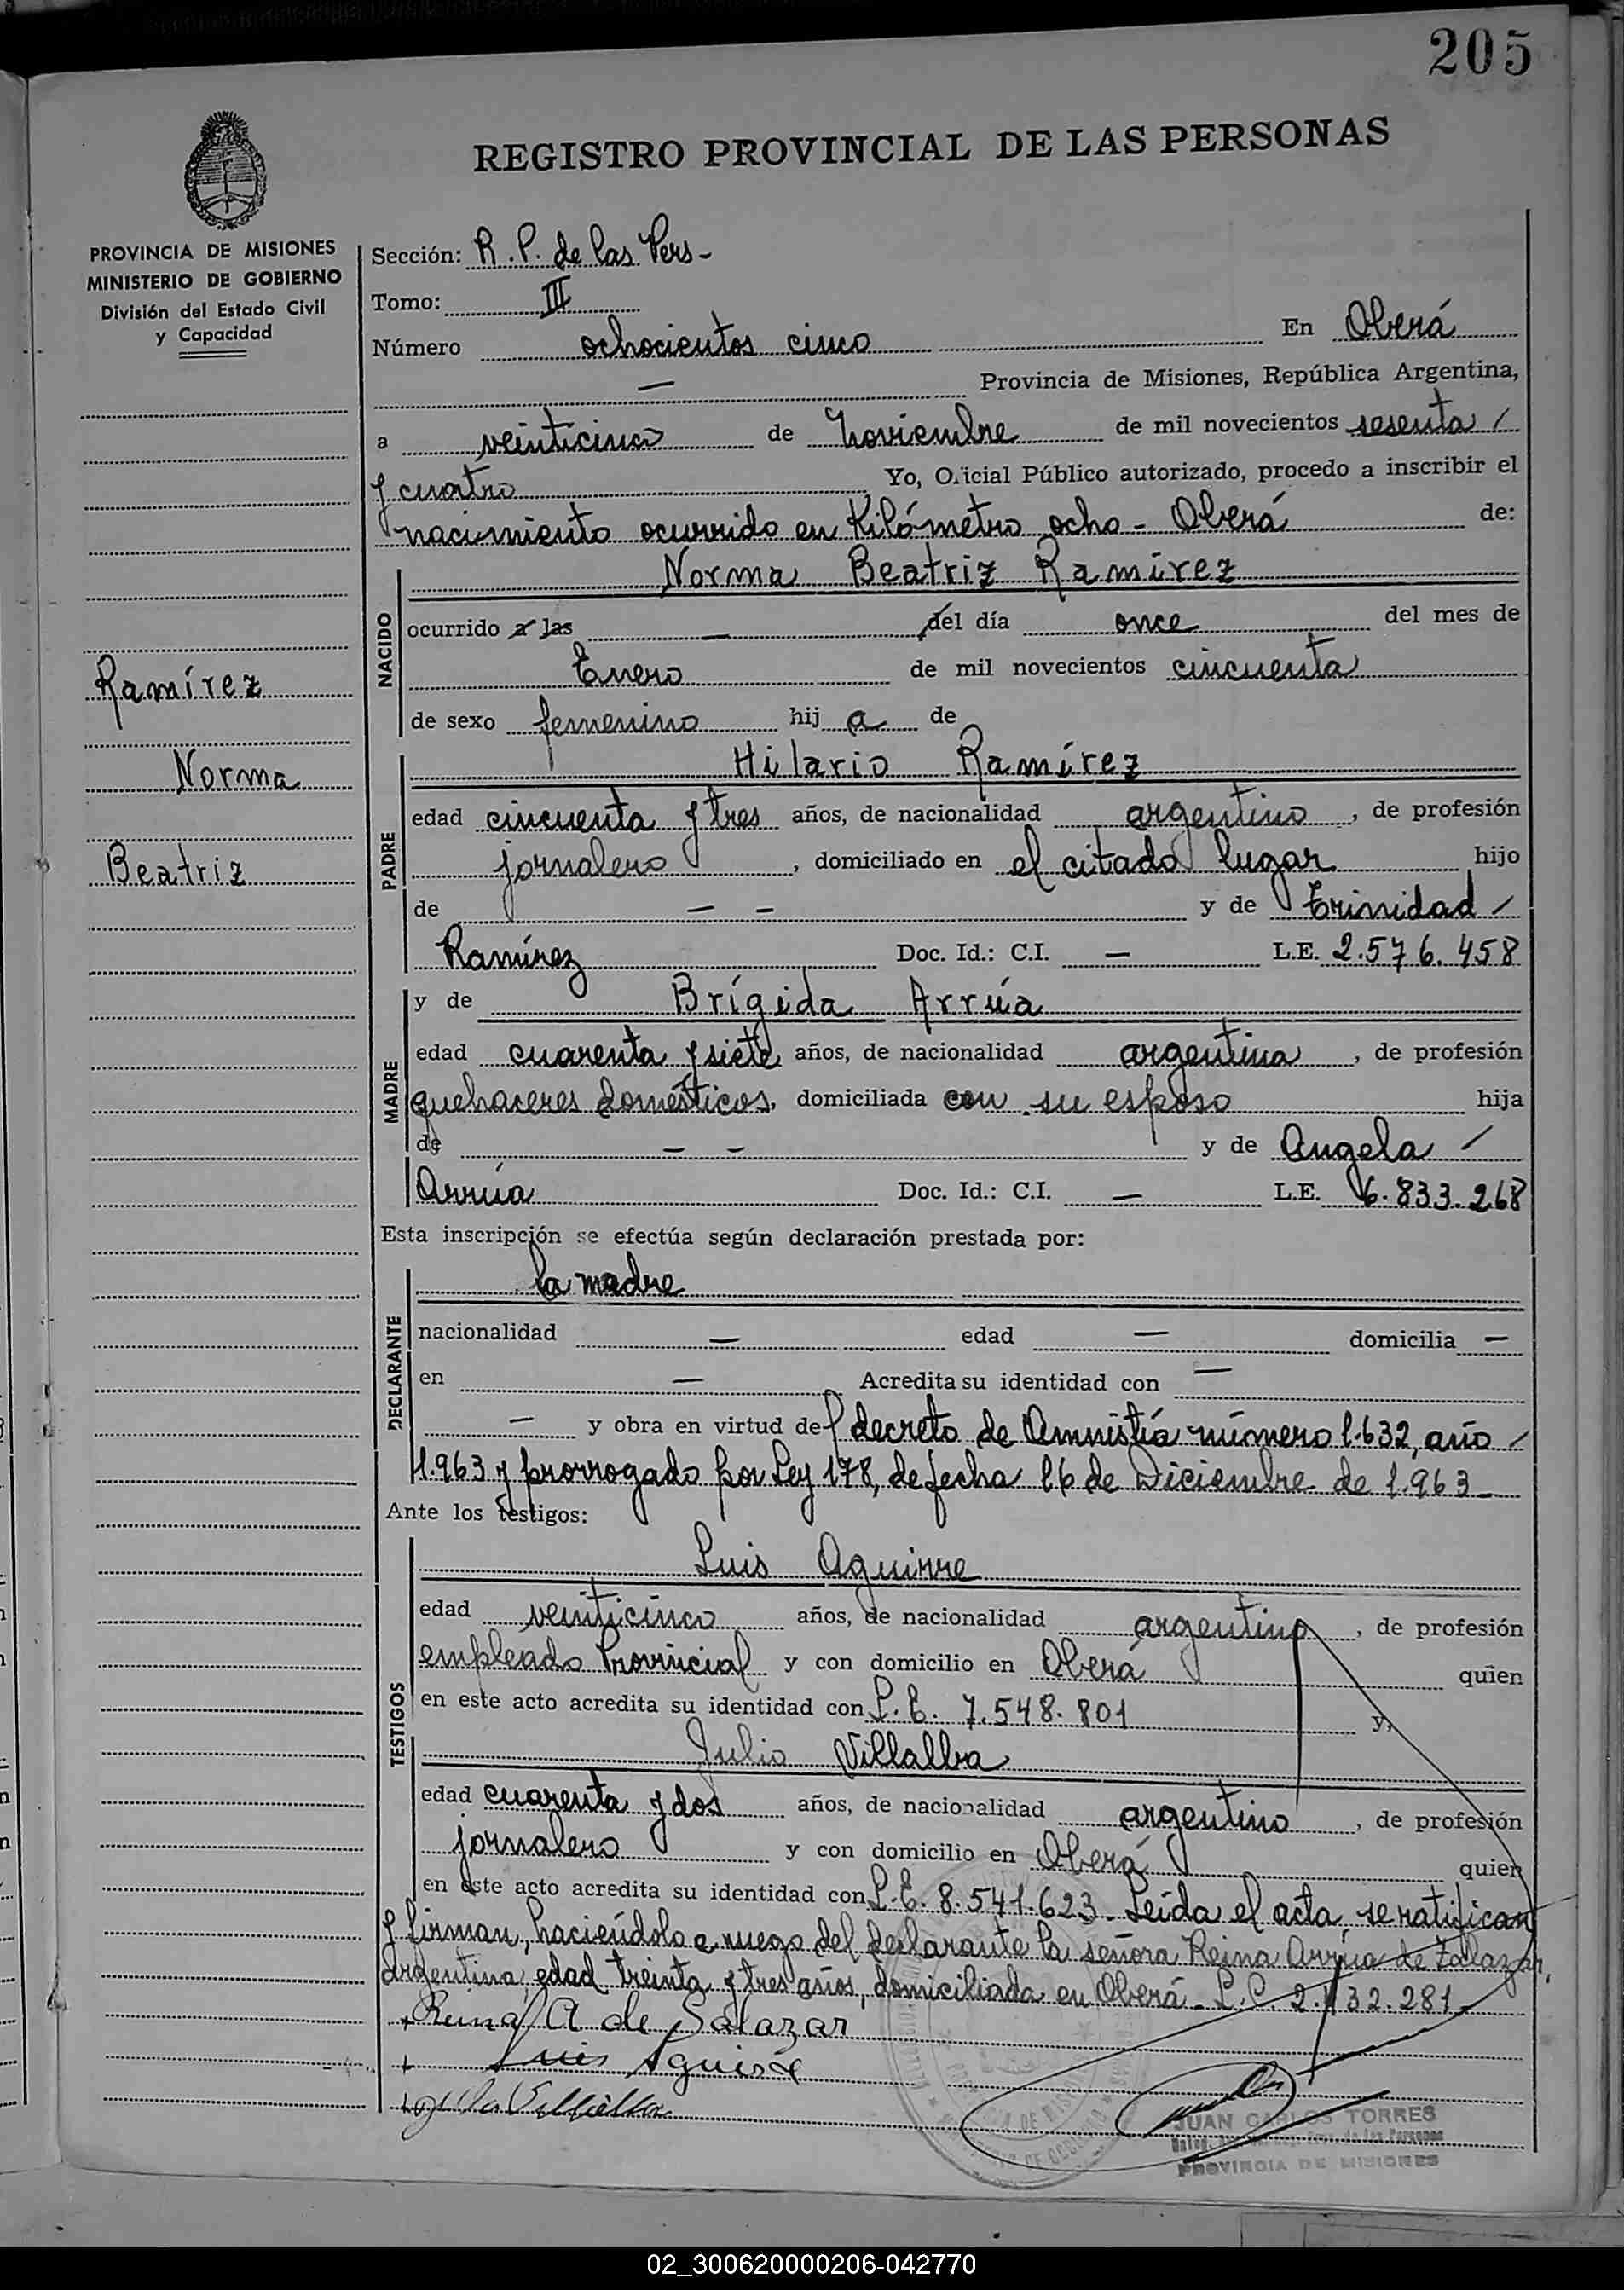 205
REGISTRO PROVINCIAL DE LAS PERSONAS
PROVINCIA DE MISIONES
MINISTERIO DE GOBIERNO
División del Estado Civil
y Capacidad
Ramírez
Norma
Beatriz
Sección: R. P. de las Pers-
Tomo: III
Número ochocientos cinco En Oberá
— Provincia de Misiones, República Argentina,
a veinticinco de Noviembre de mil novecientos sesenta /
y cuatro Yo, Oficial Público autorizado, procedo a inscribir el
nacimiento ocurrido en Kilómetro ocho - Oberá de:
NACIDO
Norma Beatriz Ramírez
ocurrido a las — del día once del mes de
Enero de mil novecientos cincuenta
de sexo femenino hij a de
PADRE
Hilario Ramírez
edad cincuenta y tres años, de nacionalidad argentino, de profesión
jornalero, domiciliado en el citado lugar hijo
de — — y de Trinidad /
Ramírez Doc. Id.: C.I. — L.E. 2.576.458
MADRE
y de Brígida Arrúa
edad cuarenta y siete años, de nacionalidad argentina, de profesión
quehaceres domésticos, domiciliada con su esposo hija
de — — y de Angela /
Arrúa Doc. Id.: C.I. — L.E. 6.833.268
Esta inscripción se efectúa según declaración prestada por:
DECLARANTE
la madre
nacionalidad — edad — domicilia —
en — Acredita su identidad con —
— y obra en virtud del decreto de Amnistía número 1.632, año /
1.963 y prorrogado por Ley 178, de fecha 16 de Diciembre de 1.963-
Ante los testigos:
TESTIGOS
Luis Aguirre
edad veinticinco años, de nacionalidad argentino, de profesión
empleado Provincial y con domicilio en Oberá quien
en este acto acredita su identidad con L. E. 7.548.801 y,
Julio Villalba
edad cuarenta y dos años, de nacionalidad argentino, de profesión
jornalero y con domicilio en Oberá quien
en este acto acredita su identidad con L. E. 8.541.623- Leída el acta se ratifican
y firman, haciéndolo a ruego del declarante la señora Reina Arrúa de Zalazar,
argentina, edad treinta y tres años, domiciliada en Oberá - L.C. 2.432.281-
Reina A de Salazar
Luis Aguirre
Julio Villalba
JUAN CARLOS TORRES
PROVINCIA DE MISIONES
02_300620000206-042770